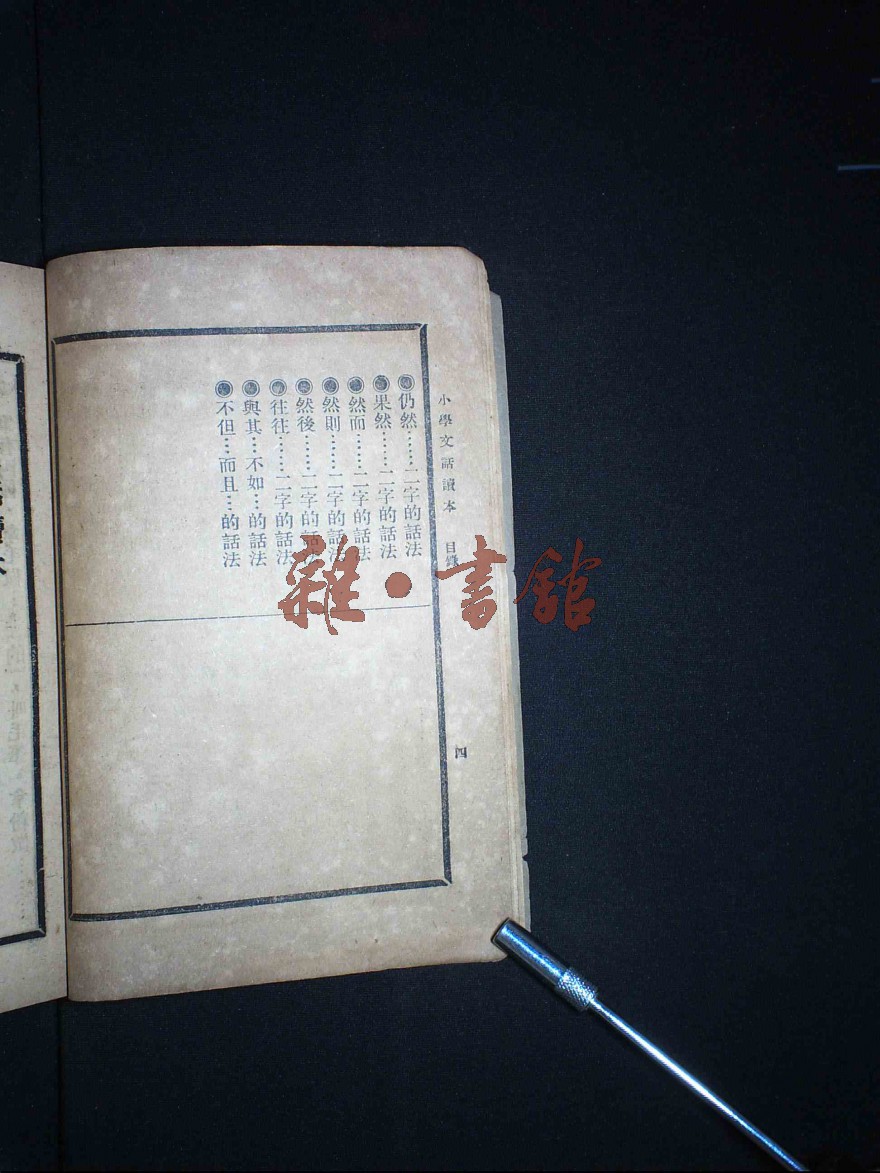 小學文話讀本 目錄 四
◉仍然……二字的話法
◉果然……二字的話法
◉然而……二字的話法
◉然則……二字的話法
◉然後……二字的話法
◉往往……二字的話法
◉與其…不如…的話法
◉不但…而且…的話法
雜·書館